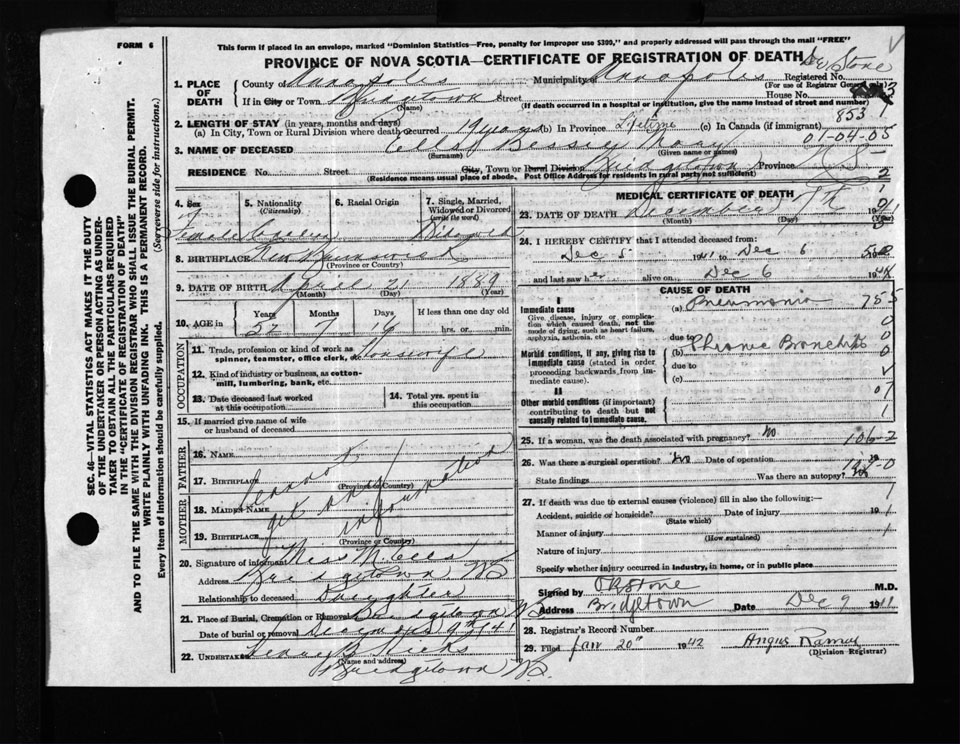 FORM 6
This form if placed in an envelope, marked "Dominion Statistics—Free, penalty for improper use $300," and properly addressed will pass through the mail "FREE"
PROVINCE OF NOVA SCOTIA—CERTIFICATE OF REGISTRATION OF DEATH
1. PLACE OF DEATH
County of Annapolis Municipality of Annapolis Registered No.
(For use of Registrar General only)
If in City or Town Bridgetown Street House No.
(Name) (If death occurred in a hospital or institution, give the name instead of street and number)
2. LENGTH OF STAY (in years, months and days)
(a) In City, Town or Rural Division where death occurred 19 years (b) In Province Lifetime (c) In Canada (if immigrant)
853
01-04-05
3. NAME OF DECEASED Bessie
(Surname) (Given name or names)
RESIDENCE No. Street City, Town or Rural Division Bridgetown Province N.S.
(Residence means usual place of abode. Post Office Address for residents in rural parts not sufficient)
4. Sex
5. Nationality
(Citizenship)
6. Racial Origin
7. Single, Married, Widowed or Divorced
(write the word)
Female Widowed
8. BIRTHPLACE New Brunswick
(Province or Country)
9. DATE OF BIRTH April 21 1889
(Month) (Day) (Year)
10. AGE in Years Months Days If less than one day old
52 7 16 hrs. or min.
OCCUPATION
11. Trade, profession or kind of work as spinner, teamster, office clerk, etc. Housewife
12. Kind of industry or business, as cotton-mill, lumbering, bank, etc.
13. Date deceased last worked at this occupation
14. Total yrs. spent in this occupation
15. If married give name of wife or husband of deceased
FATHER
16. NAME
17. BIRTHPLACE
(Province or Country)
MOTHER
18. MAIDEN NAME
19. BIRTHPLACE
(Province or Country)
cannot
get any
information
20. Signature of informant
Address Bridgetown NS
Relationship to deceased Daughter
21. Place of Burial, Cremation or Removal Bridgetown NS
Date of burial or removal December 9th 1941
22. UNDERTAKER Hicks
(Name and address)
Bridgetown N.S.
MEDICAL CERTIFICATE OF DEATH
23. DATE OF DEATH December 7th 1941
(Month) (Day) (Year)
24. I HEREBY CERTIFY that I attended deceased from:
Dec 5 1941 to Dec 6
and last saw her alive on Dec 6 19
CAUSE OF DEATH
I
Immediate cause
Give disease, injury or complication which caused death, not the mode of dying, such as heart failure, asphyxia, asthenia, etc
(a) Pneumonia
due to
Morbid conditions, if any, giving rise to immediate cause (stated in order proceeding backwards from immediate cause).
(b) Chronic Bronchitis
due to
(c)
II
Other morbid conditions (if important) contributing to death but not causally related to immediate cause.
25. If a woman, was the death associated with pregnancy? no
106-2
26. Was there a surgical operation? No Date of operation 19
State findings Was there an autopsy?
27. If death was due to external causes (violence) fill in also the following:—
Accident, suicide or homicide? Date of injury 19
(State which)
Manner of injury
(How sustained)
Nature of injury
Specify whether injury occurred in industry, in home, or in public place
Signed by Stone M.D.
Address Bridgetown Date Dec 9 1941
28. Registrar's Record Number
29. Filed Jan 20th 1942 Angus Ramey
(Division Registrar)
SEC. 46—VITAL STATISTICS ACT MAKES IT THE DUTY
OF THE UNDERTAKER OR PERSON ACTING AS UNDERTAKER TO OBTAIN ALL THE PARTICULARS REQUIRED
IN THE "CERTIFICATE OF REGISTRATION OF DEATH"
AND TO FILE THE SAME WITH THE DIVISION REGISTRAR WHO SHALL ISSUE THE BURIAL PERMIT.
WRITE PLAINLY WITH UNFADING INK. THIS IS A PERMANENT RECORD.
Every item of Information should be carefully supplied. (See reverse side for instructions.)